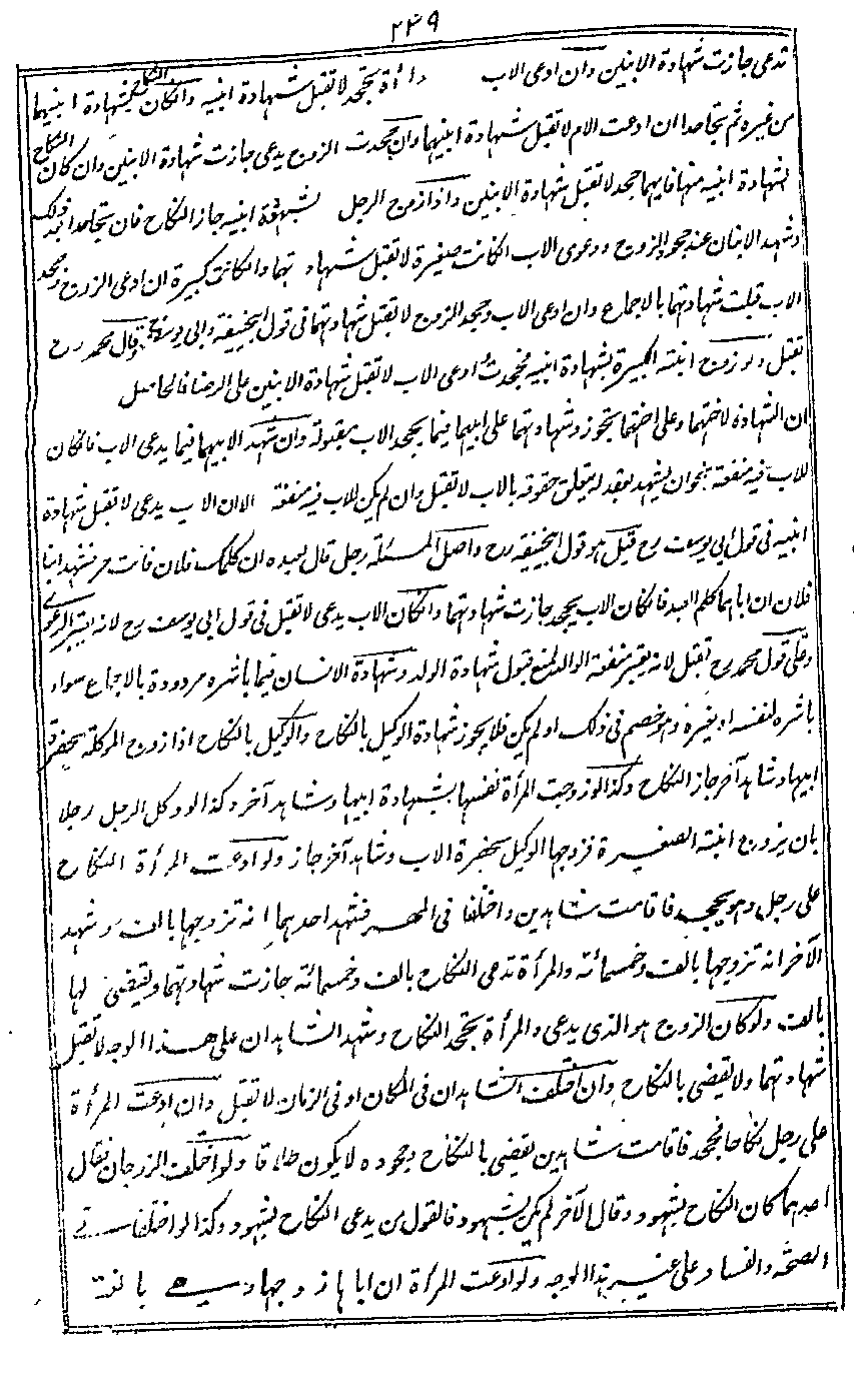 ٢٣٩
تدعى جازت شهادة الابنين وان ادعى الاب والمرأة تجحد لا تقبل شهادة ابنيه وان كان النكاح بشهادة ابنيهما
من غيره ثم تجاحدا ان ادعت الام لا تقبل شهادة ابنيها وان جحدت الزوج يدعى جازت شهادة الابنين وان كان النكاح
بشهادة ابنيه منها فايهما جحد لا تقبل شهادة الابنين واذا زوج الرجل بشهادة ابنيه جاز النكاح فان تجاحدا بعد ذلك
وشهد الابنان عند جحود الزوج ودعوى الاب ان كانت صغيرة لا تقبل شهادتهما وان كانت كبيرة ان ادعى الزوج وجحد
الاب قبلت شهادتهما بالاجماع وان ادعى الاب وجحد الزوج لا تقبل شهادتهما فى قول ابيحنيفة وابى يوسف رح وقال محمد رح
تقبل ولو زوج ابنته الكبيرة بشهادة ابنيه فجحدت وادعى الاب لا تقبل شهادة الابنين على الرضا فالحاصل
ان الشهادة لاختهما وعلى اختهما تجوز وشهادتهما على ابيهما فيما يجحد الاب مقبولة وان شهدا لابيهما فيما يدعى الاب فان كان
للاب فيه منفعة نحو ان يشهد بعقد له يتعلق حقوقه بالاب لا تقبل وان لم يكن للاب فيه منفعة الا ان الاب يدعى لا تقبل شهادة
ابنيه فى قول ابى يوسف رح قيل هو قول ابيحنيفة رح واصل المسئلة رجل قال لعبده ان كلمك فلان فانت حر فشهد ابنا
فلان ان اباهما كلم العبد فان كان الاب يجحد جازت شهادتهما وان كان الاب يدعى لا تقبل فى قول ابى يوسف رح لانه يعتبر الدعوى
وعلى قول محمد رح تقبل لانه يعتبر منفعة الوالد لمنع قبول شهادة الولد وشهادة الانسان فيما باشره مردودة بالاجماع سواء
باشره لنفسه او لغيره وهو خصم فى ذلك او لم يكن فلا يجوز شهادة الوكيل بالنكاح والوكيل بالنكاح اذا زوج الموكلة بحضرة
ابيها وشاهد آخر جاز النكاح وكذا لو زوجت المرأة نفسها بشهادة ابيها وشاهد آخر وكذا لو وكل الرجل رجلا
بان يزوج ابنته الصغيرة فزوجها الوكيل بحضرة الاب وشاهد آخر جاز ولو ادعت المرأة النكاح
على رجل وهو يجحد فاقامت شاهدين واختلفا فى المهر فشهد احدهما انه تزوجها بالف وشهد
الآخر انه تزوجها بالف وخمسمائة والمرأة تدعى النكاح بالف وخمسمائة جازت شهادتهما ويقضى لها
بالف ولو كان الزوج هو الذى يدعى والمرأة تجحد النكاح وشهد الشاهدان على هذا الوجه لا تقبل
شهادتهما ولا يقضى بالنكاح وان اختلف الشاهدان فى المكان او فى الزمان لا تقبل وان ادعت المرأة
على رجل نكاحا فجحد فاقامت شاهدين يقضى بالنكاح وجحوده لا يكون طلاقا ولو اختلف الزوجان فقال
احدهما كان النكاح بشهود وقال الآخر لم يكن بشهود فالقول من يدعى النكاح بشهود وكذا لو اختلفا فى
الصحة والفساد على غير هذا الوجه ولو ادعت المرأة ان اباها زوجها وهى بالغة